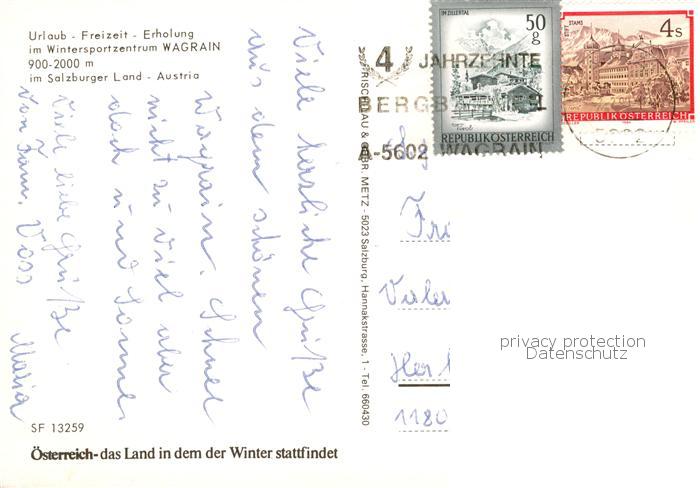 Urlaub - Freizeit - Erholung
im Wintersportzentrum WAGRAIN
900-2000 m
im Salzburger Land - Austria
Viele herzliche Grüße
aus dem schönen
Wagrain. Schnee
nicht zu viel aber
doch und Sonne.
Viele liebe Grüße
von Fam. Voss
Maria
SF 13259
Österreich-das Land in dem der Winter stattfindet
METZ - 5023 Salzburg, Hannakstrasse, 1 - Tel. 660430
4 JAHRZEHNTE
A-5602 WAGRAIN
IM ZILLERTAL
50
g
Tirol
REPUBLIK ÖSTERREICH
STIFT STAMS
4 S
REPUBLIK ÖSTERREICH
1180
privacy protection
Datenschutz